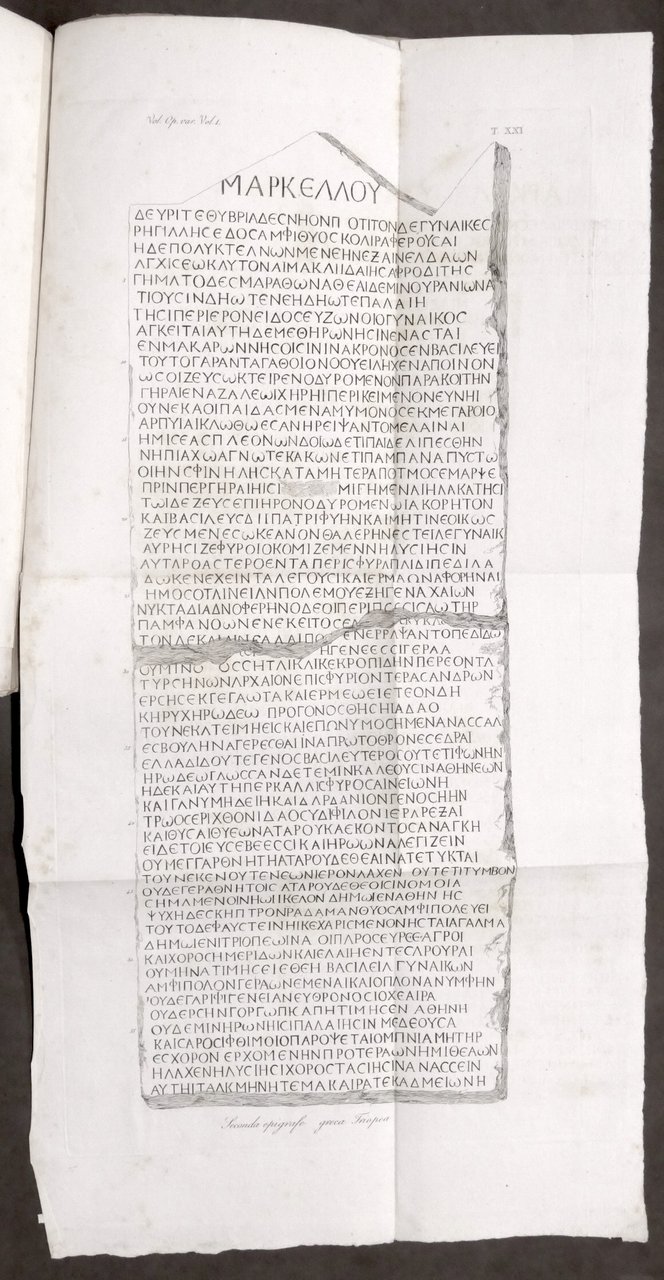 Vol. Op. var. Vol. 1.
T. XXI
ΜΑΡΚΕΛΛΟΥ
ΔΕΥΡΙΤΕΘΥΒΡΙΛΔΕϹΝΗΟΝΠ ΟΤΙΤΟΝΔΕΓΥΝΑΙΚΕϹ
ΡΗΓΙΛΛΗϹΕΔΟϹΑΜΨΙΘΥΟϹΚΟΛΙΡΑΦΕΡΟΥϹΑΙ
ΗΔΕΠΟΛΥΚΤΕΛΝΩΝΜΕΝΕΗΝΕΞΑΙΝΕΛΔΑΩΝ
ΑΓΧΙϹΕΩΚΛΥΤΟΝΑΙΜΑΚΑΙΙΔΑΙΗϹΑΦΡΟΔΙΤΗϹ
ΓΗΜΑΤΟΔΕϹΜΑΡΑΘΩΝΑΘΕΑΙΔΕΜΙΝΟΥΡΑΝΙΩΝΑΙ
ΤΙΟΥϹΙΝΔΗΩΤΕΝΕΗΔΗΩΤΕΠΑΛΑΙΗ
ΤΗϹΙΠΕΡΙΕΡΟΝΕΙΔΟϹΕΥΖΩΝΟΙΟΓΥΝΑΙΚΟϹ
ΑΓΚΕΙΤΑΙΑΥΤΗΔΕΜΕΘΗΡΩΝΗϹΙΝΕΝΑϹΤΑΙ
ΕΝΜΑΚΑΡΩΝΝΗϹΟΙϹΙΝΙΝΑΚΡΟΝΟϹΕΝΒΑϹΙΛΕΥΕΙ
ΤΟΥΤΟΓΑΡΑΝΤΑΓΑΘΟΙΟΝΟΟΥΕΙΛΗΧΕΝΑΠΟΙΝΟΝ
ΩϹΟΙΖΕΥϹΩΚΤΕΙΡΕΝΟΔΥΡΟΜΕΝΟΝΠΑΡΑΚΟΙΤΗΝ
ΓΗΡΑΙΕΝΑΖΑΛΕΩΙΧΗΡΗΙΠΕΡΙΚΕΙΜΕΝΟΝΕΥΝΗΙ
ΟΥΝΕΚΑΟΙΠΑΙΔΑϹΜΕΝΑΜΥΜΟΝΟϹΕΚΜΕΓΑΡΟΙΟ
ΑΡΠΥΙΑΙΚΛΩΘΩΕϹΑΝΗΡΕΙΨΑΝΤΟΜΕΛΑΙΝΑΙ
ΗΜΙϹΕΑϹΠΛΕΟΝΩΝΔΟΙΩΔΕΤΙΠΑΙΔΕΛΙΠΕϹΘΗΝ
ΝΗΠΙΑΧΩΑΓΝΩΤΕΚΑΚΩΝΕΤΙΠΑΜΠΑΝΑΠΥϹΤΩ
ΟΙΗΝϹΨΙΝΗΛΗϹΚΑΤΑΜΗΤΕΡΑΠΟΤΜΟϹΕΜΑΡΨΕ
ΠΡΙΝΠΕΡΓΗΡΑΙΗΙϹΙ ΜΙΓΗΜΕΝΑΙΗΛΑΚΑΤΗϹΙ
ΤΩΙΔΕΖΕΥϹΕΠΙΗΡΟΝΟΔΥΡΟΜΕΝΩΙΑΚΟΡΗΤΟΝ
ΚΑΙΒΑϹΙΛΕΥϹΔΙΙΠΑΤΡΙΨΥΗΝΚΑΙΜΗΤΙΝΕΟΙΚΩϹ
ΖΕΥϹΜΕΝΕϹΩΚΕΑΝΟΝΘΑΛΕΡΗΝΕϹΤΕΙΛΕΓΥΝΑΙΚ
ΑΥΡΗϹΙΖΕΦΥΡΟΙΟΚΟΜΙΖΕΜΕΝΝΗΛΥϹΙΗϹΙΝ
ΑΥΤΑΡΟΑϹΤΕΡΟΕΝΤΑΠΕΡΙϹΦΥΡΑΠΑΙΔΙΠΕΔΙΛΑ
ΔΩΚΕΝΕΧΕΙΝΤΑΛΕΓΟΥϹΙΚΑΙΕΡΜΑΩΝΑΦΟΡΗΝΑΙ
ΗΜΟϹΟΤΑΙΝΕΙΑΝΠΟΛΕΜΟΥΕΞΗΓΕΝΑΧΑΙΩΝ
ΝΥΚΤΑΔΙΑΔΝΟΦΕΡΗΝΟΔΕΟΙΠΕΡΙΠΟϹϹΙϹΑΩΤΗΡ
ΠΑΜΦΑΝΟΩΝΕΝΕΚΕΙΤΟϹΕ
ΤΟΝΔΕΚΑΙΑΙΝΕΑΔΑΙΠΟ ΕΝΕΡΡΑΨΑΝΤΟΠΕΔΙΛΩ
ΗΓΕΝΕΕϹϹΙΓΕΡΑΑ
ΟΥΜΙΝΟ ΟϹϹΗΤΑΙΚΑΙΚΕΚΡΟΠΙΔΗΝΠΕΡΕΟΝΤΑ
ΤΥΡϹΗΝΩΝΑΡΧΑΙΟΝΕΠΙϹΦΥΡΙΟΝΤΕΡΑϹΑΝΔΡΩΝ
ΕΡϹΗϹΕΚΓΕΓΑΩΤΑΚΑΙΕΡΜΕΩΕΙΕΤΕΟΝΔΗ
ΚΗΡΥΧΗΡΩΔΕΩ ΠΡΟΓΟΝΟϹΘΗϹΗΙΑΔΑΟ
ΤΟΥΝΕΚΑΤΕΙΜΗΕΙϹΚΑΙΕΠΩΝΥΜΟϹΗΜΕΝΑΝΑϹϹΑΝ
ΕϹΒΟΥΛΗΝΑΓΕΡΕϹΘΑΙΙΝΑΠΡΩΤΟΘΡΟΝΕϹΕΔΡΑΙ
ΕΛΛΑΔΙΔΟΥΤΕΓΕΝΟϹΒΑϹΙΛΕΥΤΕΡΟϹΟΥΤΕΤΙΨΩΝΗΝ
ΗΡΩΔΕΩΓΛΩϹϹΑΝΔΕΤΕΜΙΝΚΑΛΕΟΥϹΙΝΑΘΗΝΕΩΝ
ΗΔΕΚΑΙΑΥΤΗΠΕΡΚΑΛΛΙϹΦΥΡΟϹΑΙΝΕΙΩΝΗ
ΚΑΙΓΑΝΥΜΗΔΕΙΗΚΑΙΔΑΡΔΑΝΙΟΝΓΕΝΟϹΗΗΝ
ΤΡΩΟϹΕΡΙΧΘΟΝΙΔΑΟϹΥΔΙΦΙΛΟΝΙΕΡΑΡΕΞΑΙ
ΚΑΙΘΥϹΑΙΘΥΕΩΝΑΤΑΡΟΥΚΑΕΚΟΝΤΟϹΑΝΑΓΚΗ
ΕΙΔΕΤΟΙΕΥϹΕΒΕΕϹϹΙΚΑΙΗΡΩΩΝΑΛΕΓΙΖΕΙΝ
ΟΥΜΕΓΓΑΡΘΝΗΤΗΑΤΑΡΟΥΔΕΘΕΑΙΝΑΤΕΤΥΚΤΑΙ
ΤΟΥΝΕΚΕΝΟΥΤΕΝΕΩΝΙΕΡΟΝΛΑΧΕΝ ΟΥΤΕΤΙΤΥΜΒΟΝ
ΟΥΔΕΓΕΡΑΘΝΗΤΟΙϹ ΑΤΑΡΟΥΔΕΘΕΟΙϹΙΝΟΜΟΙΑ
ϹΗΜΑΜΕΝΟΙΝΗΩΙΙΚΕΛΟΝ ΔΗΜΩΙΕΝΑΘΗΝ ΗϹ
ΨΥΧΗΔΕϹΚΗΠΤΡΟΝΡΑΔΑΜΑΝΘΥΟϹΑΜΨΙΠΟΛΕΥΕΙ
ΤΟΥΤΟΔΕΨΑΥϹΤΕΙΝΗΙΚΕΧΑΡΙϹΜΕΝΟΝΗϹΤΑΙΑΓΑΛΜΑ
ΔΗΜΩΙΕΝΙΤΡΙΟΠΕΩΙΝΑ ΟΙΠΑΡΟϹΕΥΡΕΕϹΑΓΡΟΙ
ΚΑΙΧΟΡΟϹΗΜΕΡΙΔΩΝΚΑΙΕΛΑΙΗΕΝΤΕϹΑΡΟΥΡΑΙ
ΟΥΜΗΝΑΤΙΜΗϹΕΙΕΘΕΗ ΒΑϹΙΛΕΙΑ ΓΥΝΑΙΚΩΝ
ΑΜΨΙΠΟΛΟΝΓΕΡΑΩΝΕΜΕΝΑΙΚΑΙΟΠΑΟΝΑΝΥΜΨΗΝ
ΟΥΔΕΓΑΡΙΨΙΓΕΝΕΙΑΝΕΥΘΡΟΝΟϹΙΟΧΕΑΙΡΑ
ΟΥΔΕΡϹΗΝΓΟΡΓΩΠΚΑΠΗΤΙΜΗϹΕΝ ΑΘΗΝΗ
ΟΥΔΕΜΙΝΗΡΩΝΗϹΙΠΑΛΑΙΗϹΙΝ ΜΕΔΕΟΥϹΑ
ΚΑΙϹΑΡΟϹΙΦΘΙΜΟΙΟΠΑΡΟΨΕΤΑΙΟΜΠΝΙΑΜΗΤΗΡ
ΕϹΧΟΡΟΝΕΡΧΟΜΕΝΗΝΠΡΟΤΕΡΑΩΝΗΜΙΘΕΑΩΝ
ΗΛΑΧΕΝΗΛΥϹΙΗϹΙΧΟΡΟϹΤΑϹΙΗϹΙΝΑΝΑϹϹΕΙΝ
ΑΥΤΗΙΤΑΛΚΜΗΝΗΤΕΜΑΚΑΙΡΑΤΕΚΑΔΜΕΙΩΝΗ
Seconda epigrafe greca Triopea